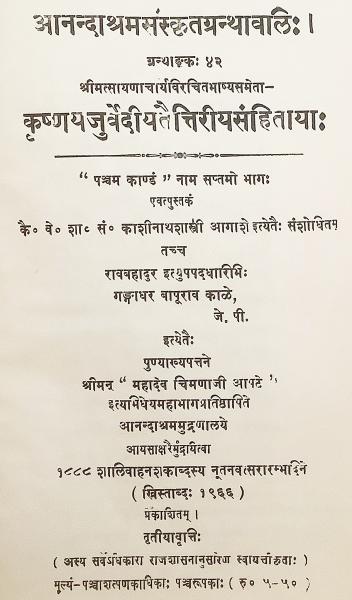 आनन्दाश्रमसंस्कृतग्रन्थावलिः ।
ग्रन्थाङ्कः ४२
श्रीमत्सायणाचार्यविरचितभाष्यसमेता-
कृष्णयजुर्वेदीयतैत्तिरीयसंहितायाः
“ पञ्चम काण्डं ” नाम सप्तमो भागः
एतत्पुस्तकं
कै० वे० शा० सं० काशीनाथशास्त्री आगाशे इत्येतैः संशोधितम्
तच्च
रावबहादुर इत्युपपदधारिभिः
गङ्गाधर बापूराव काळे,
जे. पी.
इत्येतैः
पुण्याख्यपत्तने
श्रीमन् “ महादेव चिमणाजी आपटे ”
इत्यभिधेयमहाभागप्रतिष्ठापिते
आनन्दाश्रममुद्रणालये
आयसाक्षरैर्मुद्रयित्वा
१८८८ शालिवाहनशकाब्दस्य नूतनवत्सरारम्भदिने
( ख्रिस्ताब्दः १९६६ )
प्रकाशितम् ।
तृतीयावृत्तिः
( अस्य सर्वेऽधिकारा राजशासनानुसारेण स्वायत्तीकृताः )
मूल्यं-पञ्चाशत्पणकाधिकाः पञ्चरूपकाः ( रु० ५-५० )